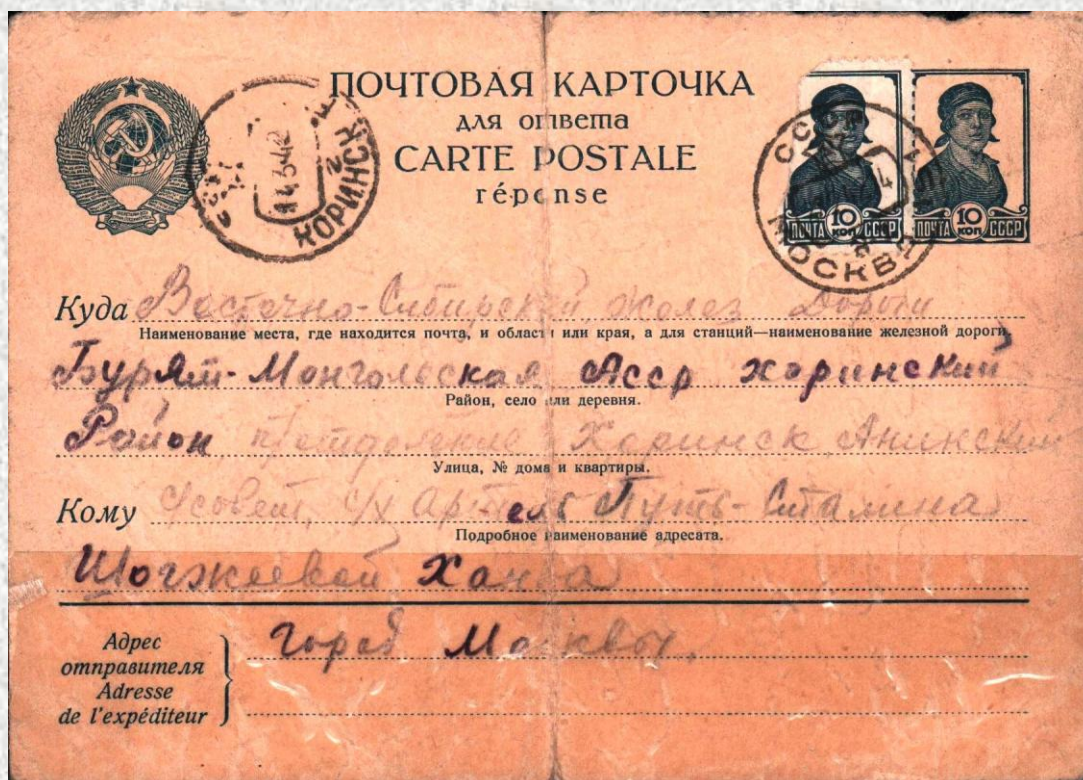 ПОЧТОВАЯ КАРТОЧКА
для ответа
CARTE POSTALE
réponse
ХОРИНСК
СССР
МОСКВА
ПОЧТА 10 КОП СССР
ПОЧТА 10 КОП СССР
Куда Восточно-Сибирской Желез Дороги
Наименование места, где находится почта, и области или края, а для станций—наименование железной дороги
Бурят-Монгольская Асср хоринский
Район, село или деревня.
Район Хоринск Анинский
Улица, № дома и квартиры.
Кому с/х Артель Путь-Сталина
Подробное наименование адресата.
Ханда
Адрес
отправителя
Adresse
de l'expéditeur
Город Москвы.